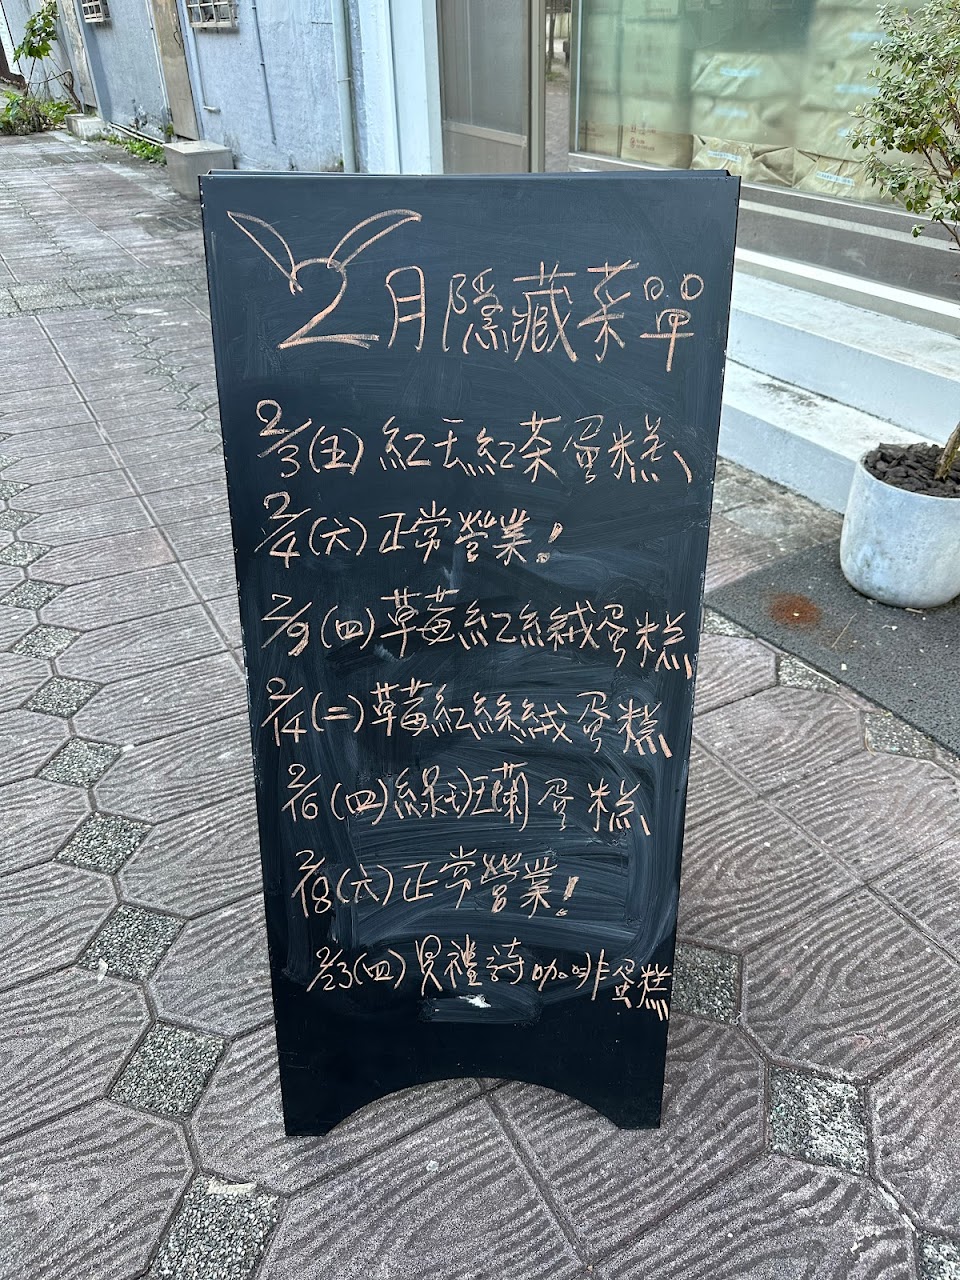 2月隱藏菜單
2/3(五)紅玉紅茶蛋糕
2/4(六)正常營業!
2/9(四)草莓紅絲絨蛋糕
2/14(二)草莓紅絲絨蛋糕
2/16(四)綠斑斕蛋糕
2/18(六)正常營業!
2/23(四)貝禮詩咖啡蛋糕